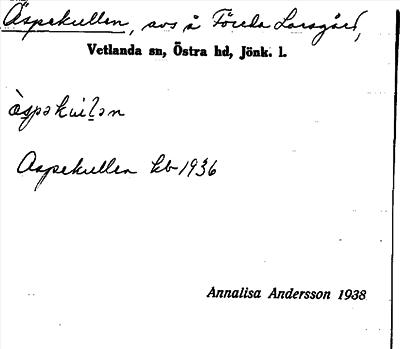 Äspekullen, avs å Föreda Larsgård,
Vetlanda sn, Östra hd, Jönk. l.
Aspekullen kb 1936
Annalisa Andersson 1938